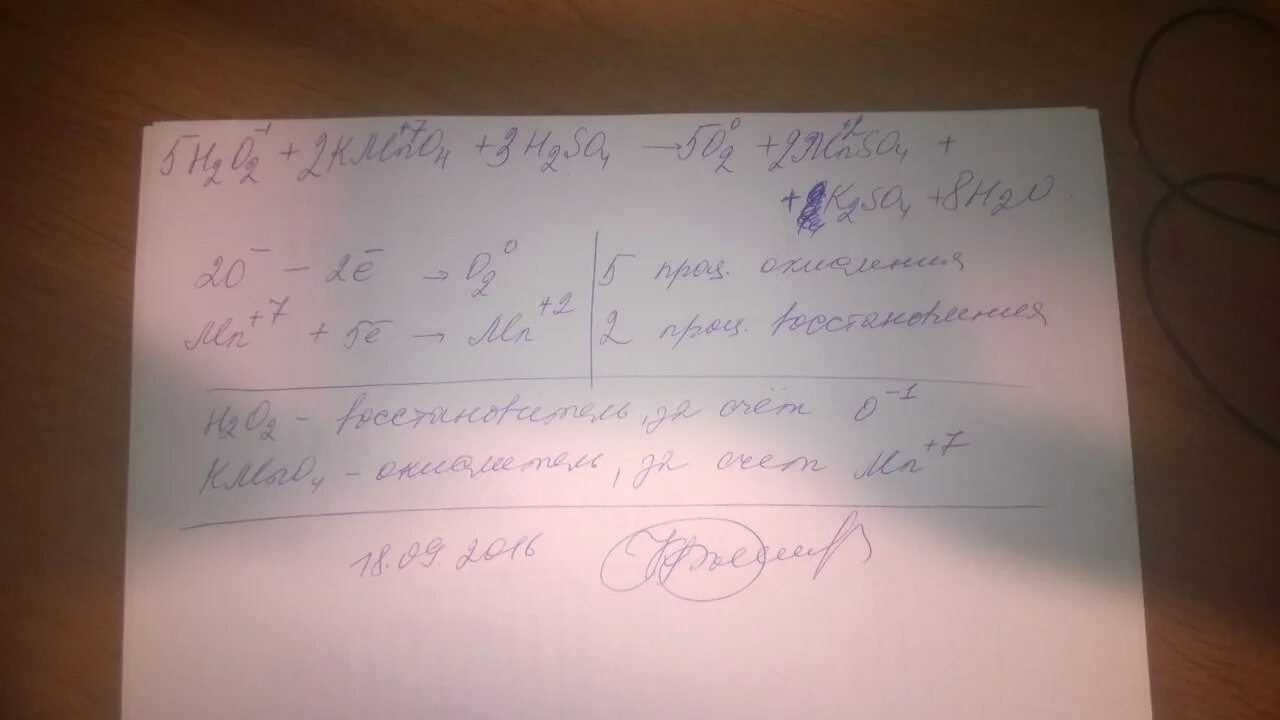 5H₂O₂⁻¹ + 2KMn⁺⁷O₄ + 3H₂SO₄ → 5O₂⁰ + 2Mn⁺²SO₄ +
+ K₂SO₄ + 8H₂O
2O⁻ – 2e̅ → O₂⁰ | 5 проц. окисления
Mn⁺⁷ + 5e̅ → Mn⁺² | 2 проц. восстановления
H₂O₂ – восстановитель, за счёт O⁻¹
KMnO₄ – окислитель, за счет Mn⁺⁷
18.09.2016